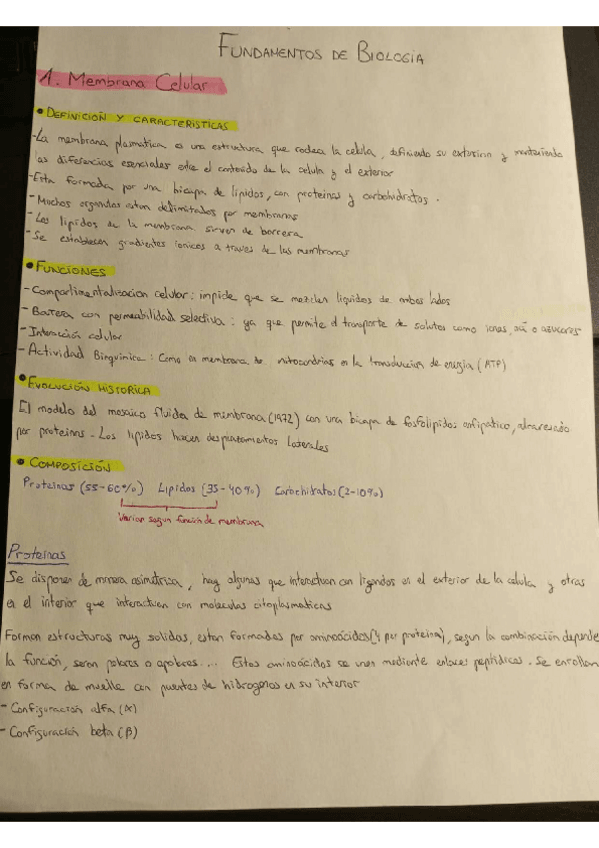 FUNDAMENTOS DE BIOLOGIA
1. Membrana Celular
• DEFINICION Y CARACTERISTICAS
-La membrana plasmatica es una estructura que rodea la celula, definiendo su exterior y manteniendo
las diferencias esenciales entre el contenido de la celula y el exterior
-Esta formada por una bicapa de lipidos, con proteinas y carbohidratos.
- Muchos organulos estan delimitados por membranas
- Los lipidos de la membrana sirven de barrera
- Se establecen gradientes ionicos a traves de las membranas
• FUNCIONES
- Compartimentalizacion celular: impide que se mezclen liquidos de ambos lados
- Barrera con permeabilidad selectiva: ya que permite el transporte de solutos como iones, o azucares
- Interacción celular
- Actividad Bioquimica: Como en membrana mitocondrias en la transduccion de energia (ATP)
• EVOLUCIÓN HISTORICA
El modelo del mosaico fluido de membrana (1972) con una bicapa de fosfolipidos anfipatico,
por proteinas - Los lipidos hacen desplazamientos laterales
• COMPOSICIÓN
Proteinas (55-60%) Lipidos (35-40%) Carbohidratos (2-10%)
Varian segun función de membrana
Proteinas
Se disponen de manera asimetrica, hay algunas que interactuan con ligandos en el exterior de la celula y otras
en el interior que interactuan con moleculas citoplasmaticas
Forman estructuras muy solidas, estan formadas por aminoácidos (4 per proteina), segun la combinación depende
la función, seran polares o apolares... Estos aminoácidos se unen mediante enlaces peptidicos. Se enrollan
en forma de muelle con puentes de hidrogenos en su interior
- Configuracion alfa (α)
- Configuración beta (β)